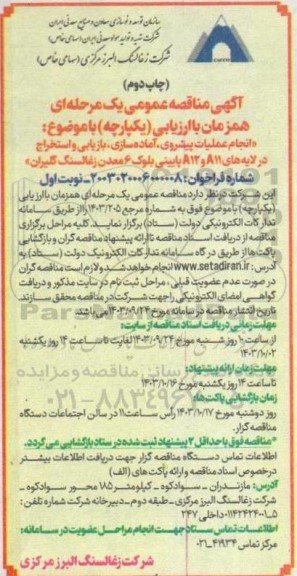 سازمان توسعه و نوسازی معادن و صنایع معدنی ایران
شرکت تهیه و تولید مواد معدنی ایران (سهامی خاص)
شرکت زغالسنگ البرز مرکزی (سهامی خاص)
(چاپ دوم)
آگهی مناقصه عمومی یک مرحله ای
همزمان با ارزیابی (یکپارچه) با موضوع:
«انجام عملیات پیشروی، آماده سازی، بازیابی و استخراج
در لایه های A11 و A12 پایینی بلوک ۶ معدن زغالسنگ کلیران»
شماره فراخوان: ۲۰۰۳۰۲۰۰۰۶۰۰۰۰۰۸- نوبت اول
این شرکت در نظر دارد مناقصه عمومی یک مرحله ای همزمان با ارزیابی
(یکپارچه) با موضوع فوق به شماره مرجع ۱۴۰۳/۲۰۵ را از طریق سامانه
تدارکات الکترونیکی دولت (ستاد) برگزار نماید. کلیه مراحل برگزاری
مناقصه از دریافت اسناد مناقصه تا ارائه پیشنهاد مناقصه گران و بازگشایی
پاکت ها از طریق درگاه سامانه تدارکات الکترونیک دولت (ستاد) به
آدرس: www.setadiran.ir انجام خواهد شد و لازم است مناقصه گران
در صورت عدم عضویت قبلی، مراحل ثبت نام در سایت مذکور و دریافت
گواهی امضای الکترونیکی را جهت شرکت در مناقصه محقق سازند.
تاریخ انتشار مناقصه در سامانه مورخ ۱۴۰۳/۰۹/۲۴ می باشد.
مهلت زمانی دریافت اسناد مناقصه از سایت:
از ساعت ۱۰ روز شنبه مورخ ۱۴۰۳/۰۹/۲۴ لغایت تا ساعت ۱۴ روز یکشنبه
۱۴۰۳/۱۰/۰۲
مهلت زمان ارائه پیشنهاد:
تا ساعت ۱۴ روز یکشنبه مورخ ۱۴۰۳/۱۰/۱۶
زمان بازگشایی پاکت ها:
روز دوشنبه مورخ ۱۴۰۳/۱۰/۱۷ رأس ساعت ۱۱ در سالن اجتماعات دستگاه
مناقصه گزار.
*مناقصه فوق با حداقل ۲ پیشنهاد ثبت شده در ستاد بازگشایی می گردد.*
اطلاعات تماس دستگاه مناقصه گزار جهت دریافت اطلاعات بیشتر
در خصوص اسناد مناقصه و ارائه پاکت های (الف)
آدرس: مازندران - سوادکوه - کیلومتر ۱۸۵ محور سوادکوه -
شرکت زغالسنگ البرز مرکزی - طبقه دوم - دبیرخانه شرکت شماره تلفن:
۵-۰۱۱۴۲۴۲۴۰۰۱ داخلی ۲۴۷
اطلاعات تماس ستاد جهت انجام مراحل عضویت در سامانه:
مرکز تماس ۴۱۹۳۴-۰۲۱
شرکت زغالسنگ البرز مرکزی